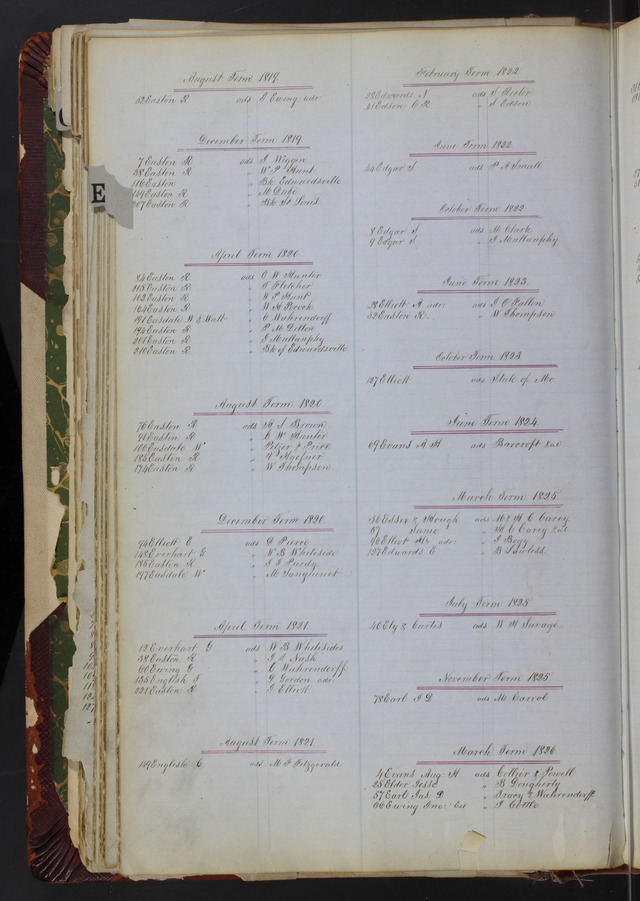 August Term 1819.
52 Easton R ads J Ewing adr
December Term 1819
7 Easton R ads J Wiggin
38 Easton R " W P Hunt
116 Easton " Bk Edwardsville
149 Easton R " M Duke
207 Easton R " Bk St Louis
April Term 1820
84 Easton R ads C W Hunter
115 Easton R " T Fletcher
163 Easton R " W P Hunt
164 Easton R " W H Brock
191 Easdale W & Matt " C Wahrendorff
194 Easton R " P M Dillon
211 Easton R " J Mullanphy
210 Easton R " Bk of Edwardsville
August Term 1820
76 Easton R ads H S Brown
91 Easton R " C W Hunter
106 Easdale W " & Pierre
185 Easton R "
174 Easton R " W Thompson
December Term 1820
94 Elliott E ads D Pierre
148 Everhart G " W B Whiteside
185 Easton R " J Purdy
197 Easdale W " M Sanguinet
April Term 1821
12 Everhart G ads W B Whitesides
38 Easton R " J Nash
60 Ewing G " C Wahrendorff
155 English J " D Gordon adr:
221 Easton R " J Elliott
August Term 1821
149 English C ads M F Fitzgerald
E
February Term 1822
28 Edwards N ads J Hister
31 Edson C R " J Edson
June Term 1822
44 Edgar J ads P A Small
October Term 1822
8 Edgar J ads M Clark
9 Edgar J " J Mullanphy
June Term 1823.
28 Elliott A adr: ads J O Fallon
52 Easton R. " W Thompson
October Term 1823
127 Elliott ads State of Mo
June Term 1824
69 Evans A H ads Barcroft &al
March Term 1825
36 Essex & Hough ads M & H C Carey
87 Same " H C Carey &al
96 Elliot adr: " J Bogy
127 Edwards E " B Lawless
July Term 1825
46 Ely & Curtis ads W H Savage
November Term 1825
78 Earl J D ads M Carrol
March Term 1826
4 Evans Aug. H ads Collier & Powell
25 Elder Jesse " B Dougherty
57 Earl Jas D " Tracy & Wahrendorff
66 Ewing Jno: " J Cottle